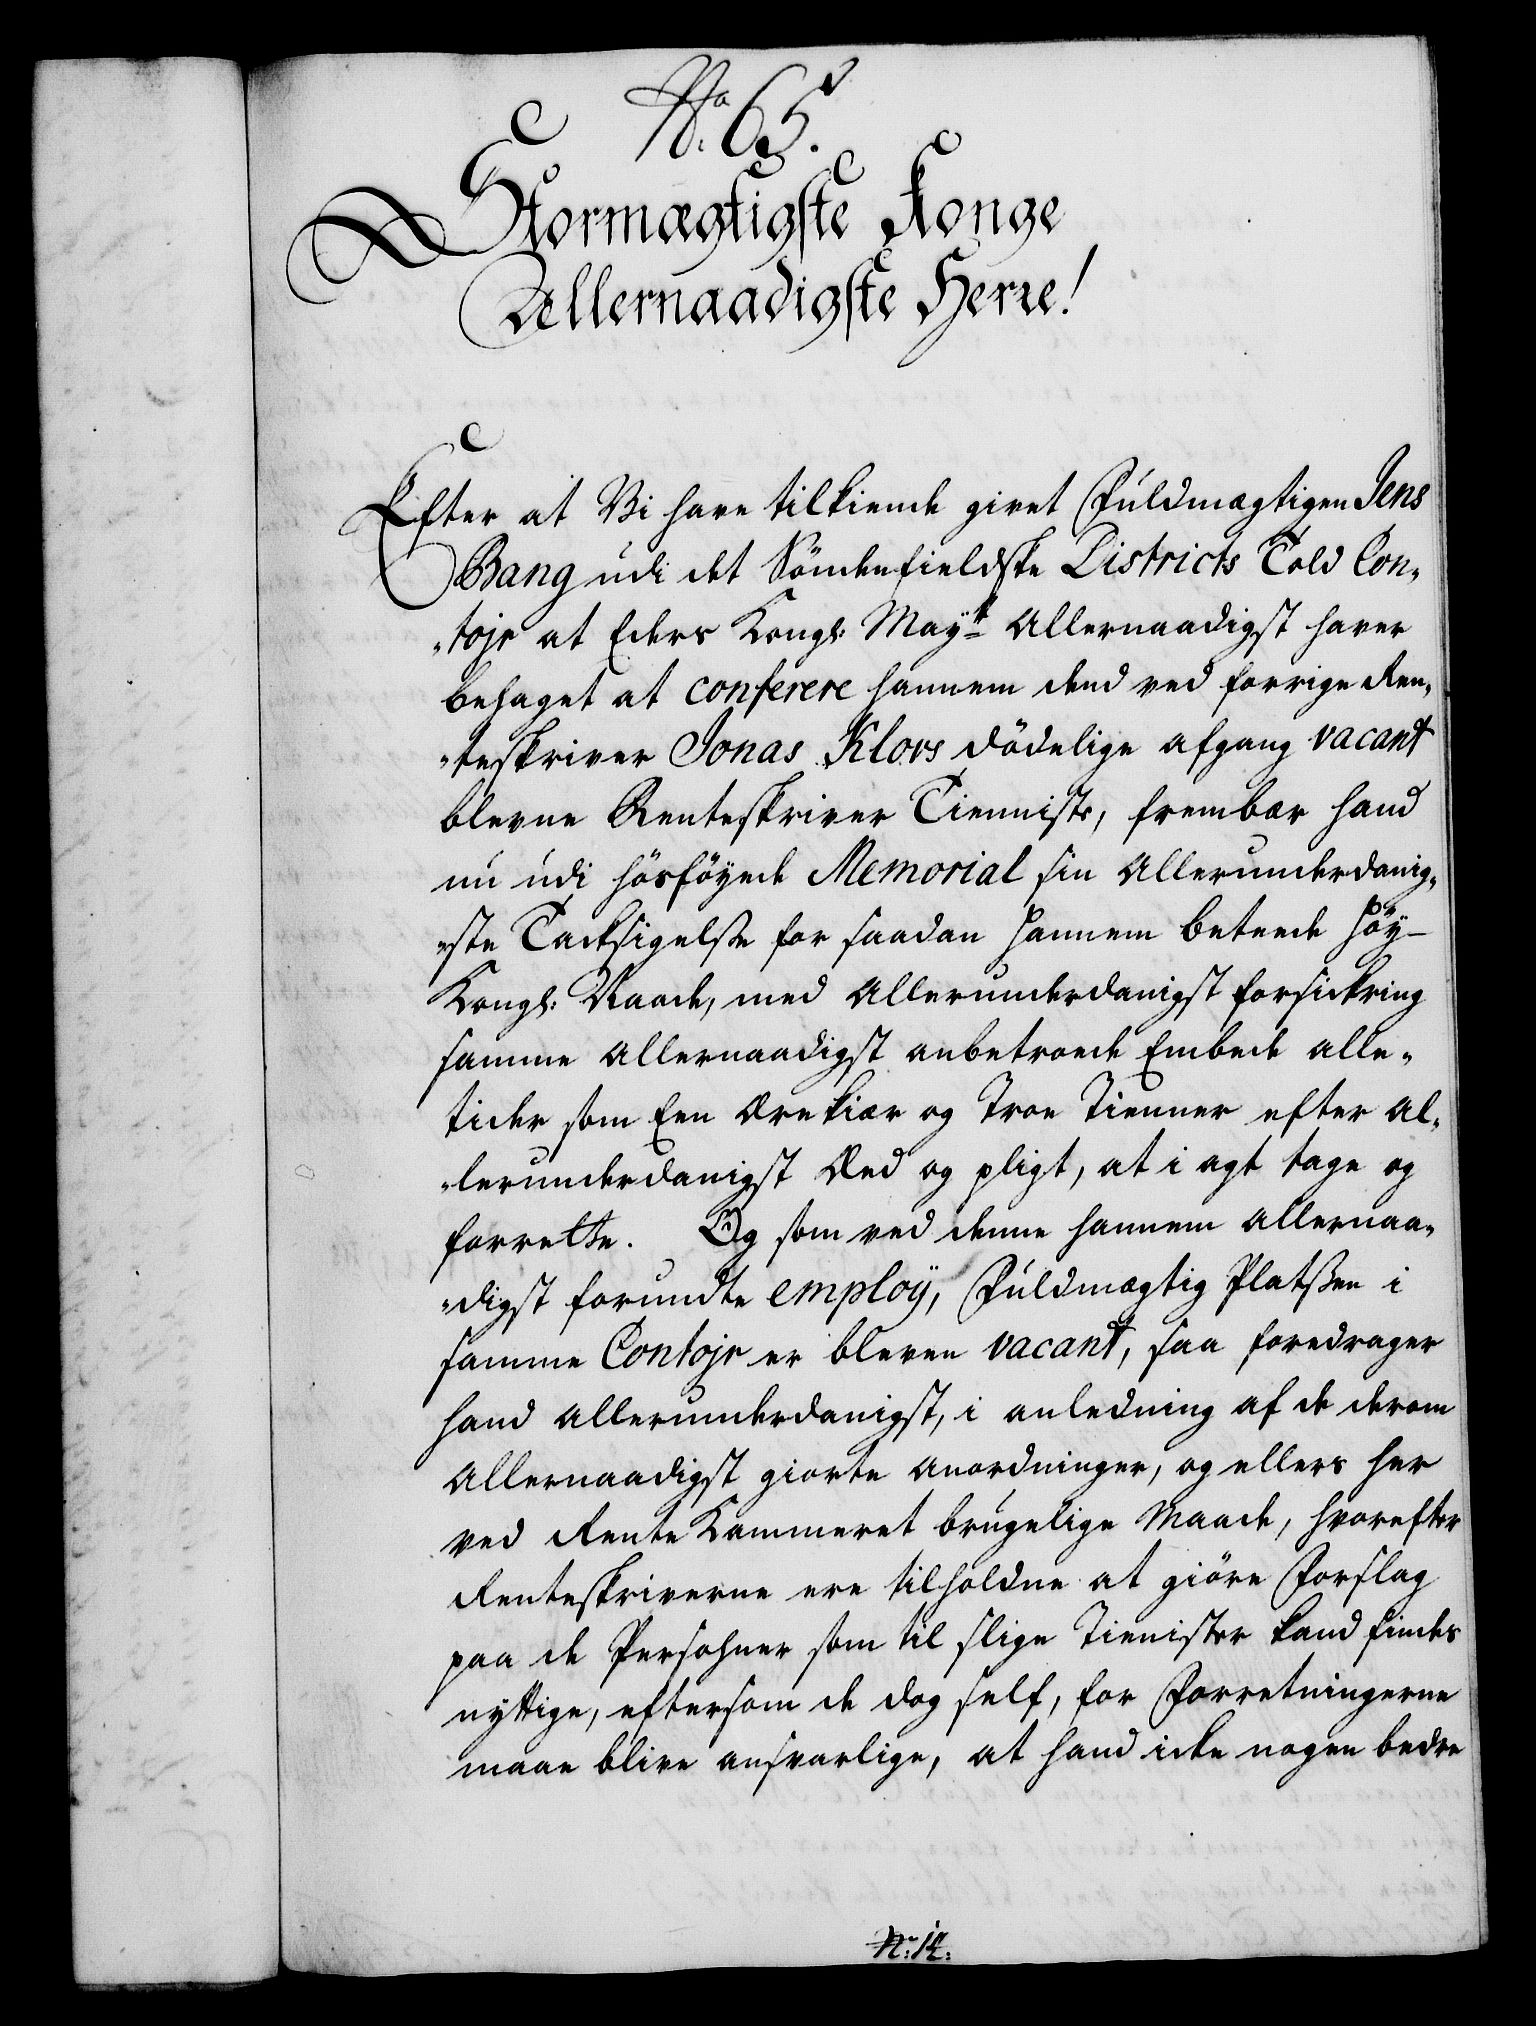 No. 65.
Stormægtigste Konge
Allernaadigste Herre!
Efter at Vi have tilkiende givet Fuldmægtigen Jens
Bang udi det Söndenfieldske Districts Told Con„
„tojr at Eders Kongl: Mayt Allernaadigst haver
behaget at conferere hannem dend ved forrige Ren„
„teskriver Jonas Klovs dödelige afgang vacant
blevne Renteskriver Tienniste, frembær hand
nu udi hösföyede Memorial sin Allerunderdanig„
„ste Tacksigelsse for saadan hannem beteede höy-
Kongl: Naade, med Allerunderdanigst forsickring
samme Allernaadigst anbetroede Embede alle„
tider som Een Ærekiær og Troe Tienner efter Al„
„lerunderdanigst Æed og pligt, at i agt tage og
forrette. Og som ved denne hannem allernaa„
„digst forundte employ, Fuldmægtig Platssen i
samme Contojr er bleven vacant, saa foredrager
hand Allerunderdanigst, i anledning af de derom
Allernaadigst giorte Anordninger, og ellers her
ved Rente Kammeret brugelige Maade, hvorefter
Renteskriverne ere tilholdne at giöre Forslag
paa de Persohner som til slige Tienister kand findes
nyttige, eftersom de dog self, for Forretningerne
maae blive ansvarlige, at hand icke nogen bedre